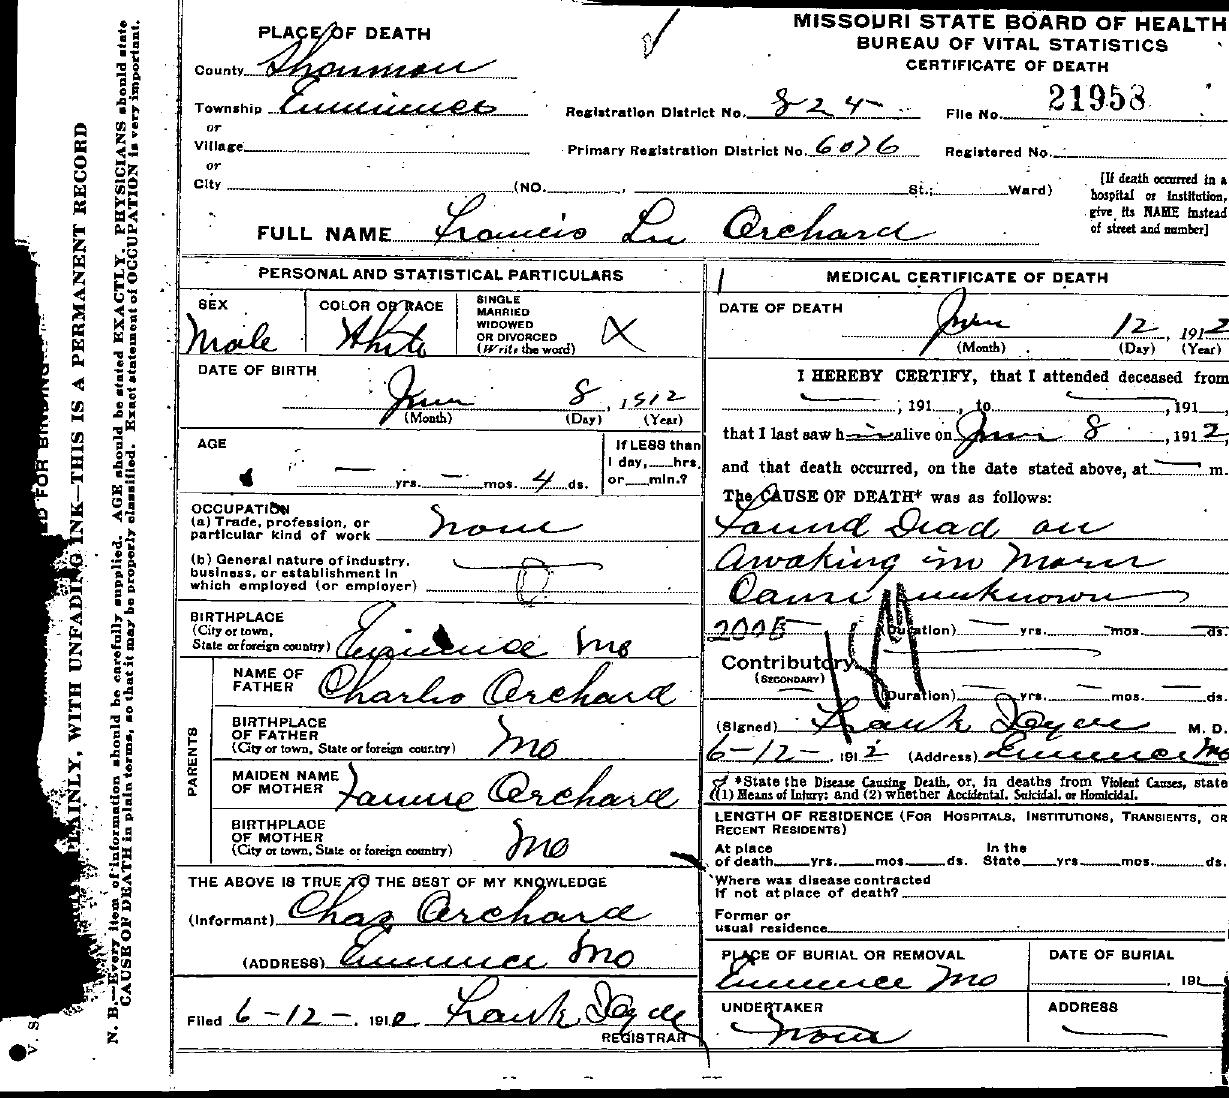 MISSOURI STATE BOARD OF HEALTH
BUREAU OF VITAL STATISTICS
CERTIFICATE OF DEATH
PLACE OF DEATH
County Shannon
Township Eminence
or
Village
or
City (NO. , St.; Ward)
Registration District No. 824
File No. 21953
Primary Registration District No. 6026
Registered No.
[If death occurred in a
hospital or institution,
give its NAME instead
of street and number]
FULL NAME Francis Lu Orchard
PERSONAL AND STATISTICAL PARTICULARS
SEX
Male
COLOR OR RACE
White
SINGLE
MARRIED
WIDOWED
OR DIVORCED
(Write the word)
X
DATE OF BIRTH
June 8, 1912
(Month) (Day) (Year)
AGE
— yrs. — mos. 4 ds.
If LESS than
1 day, hrs.
or min.?
OCCUPATION
(a) Trade, profession, or
particular kind of work none
(b) General nature of industry,
business, or establishment in
which employed (or employer)
BIRTHPLACE
(City or town,
State or foreign country) Eminence Mo
PARENTS
NAME OF
FATHER Charles Orchard
BIRTHPLACE
OF FATHER
(City or town, State or foreign country) Mo
MAIDEN NAME
OF MOTHER Fannie Orchard
BIRTHPLACE
OF MOTHER
(City or town, State or foreign country) Mo
THE ABOVE IS TRUE TO THE BEST OF MY KNOWLEDGE
(Informant) Chas Orchard
(ADDRESS) Eminence Mo
Filed 6-12-, 1912 Frank
REGISTRAR
MEDICAL CERTIFICATE OF DEATH
DATE OF DEATH
June 12, 1912
(Month) (Day) (Year)
I HEREBY CERTIFY, that I attended deceased from
, 191 , to , 191 ,
that I last saw h alive on June 8, 1912,
and that death occurred, on the date stated above, at — m.
The CAUSE OF DEATH* was as follows:
Found Dead on
Awaking in Morn
Cause unknown
(Duration) yrs. mos. ds.
Contributory
(SECONDARY)
(Duration) yrs. mos. ds.
(Signed) Frank M. D.
6-12-, 1912 (Address) Eminence Mo
*State the Disease Causing Death, or, in deaths from Violent Causes, state
(1) Means of Injury; and (2) whether Accidental, Suicidal, or Homicidal.
LENGTH OF RESIDENCE (FOR HOSPITALS, INSTITUTIONS, TRANSIENTS, OR
RECENT RESIDENTS)
At place
of death yrs. mos. ds.
In the
State yrs. mos. ds.
Where was disease contracted
if not at place of death?
Former or
usual residence
PLACE OF BURIAL OR REMOVAL
Eminence Mo
DATE OF BURIAL
, 191
UNDERTAKER
none
ADDRESS
PLAINLY, WITH UNFADING INK—THIS IS A PERMANENT RECORD
N. B.—Every item of information should be carefully supplied. AGE should be stated EXACTLY. PHYSICIANS should state
CAUSE OF DEATH in plain terms, so that it may be properly classified. Exact statement of OCCUPATION is very important.
FOR BINDING
V. S.